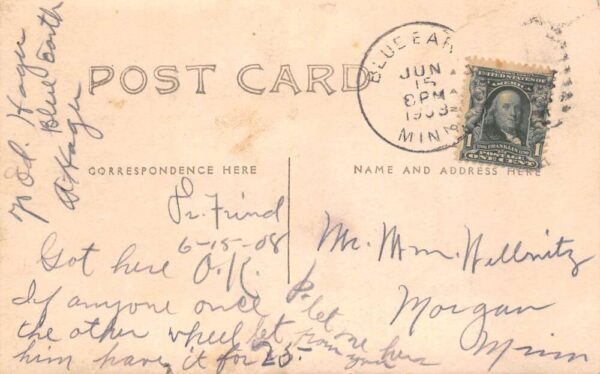 POST CARD
BLUE EAR
JUN
15
8 PM
1908
MINN
UNITED STATES OF
AMERICA
FRANKLIN
1 POSTAGE 1
ONE CENT
CORRESPONDENCE HERE
NAME AND ADDRESS HERE
Ed. Hager
Blue Earth
Hager
Fr. Friend
6-15-08
Got here O.K.
If anyone once
the other wheel let
him have it for 25.
P. let
one here
from you
Mr. Wm. Hellnitz
Morgan
Minn